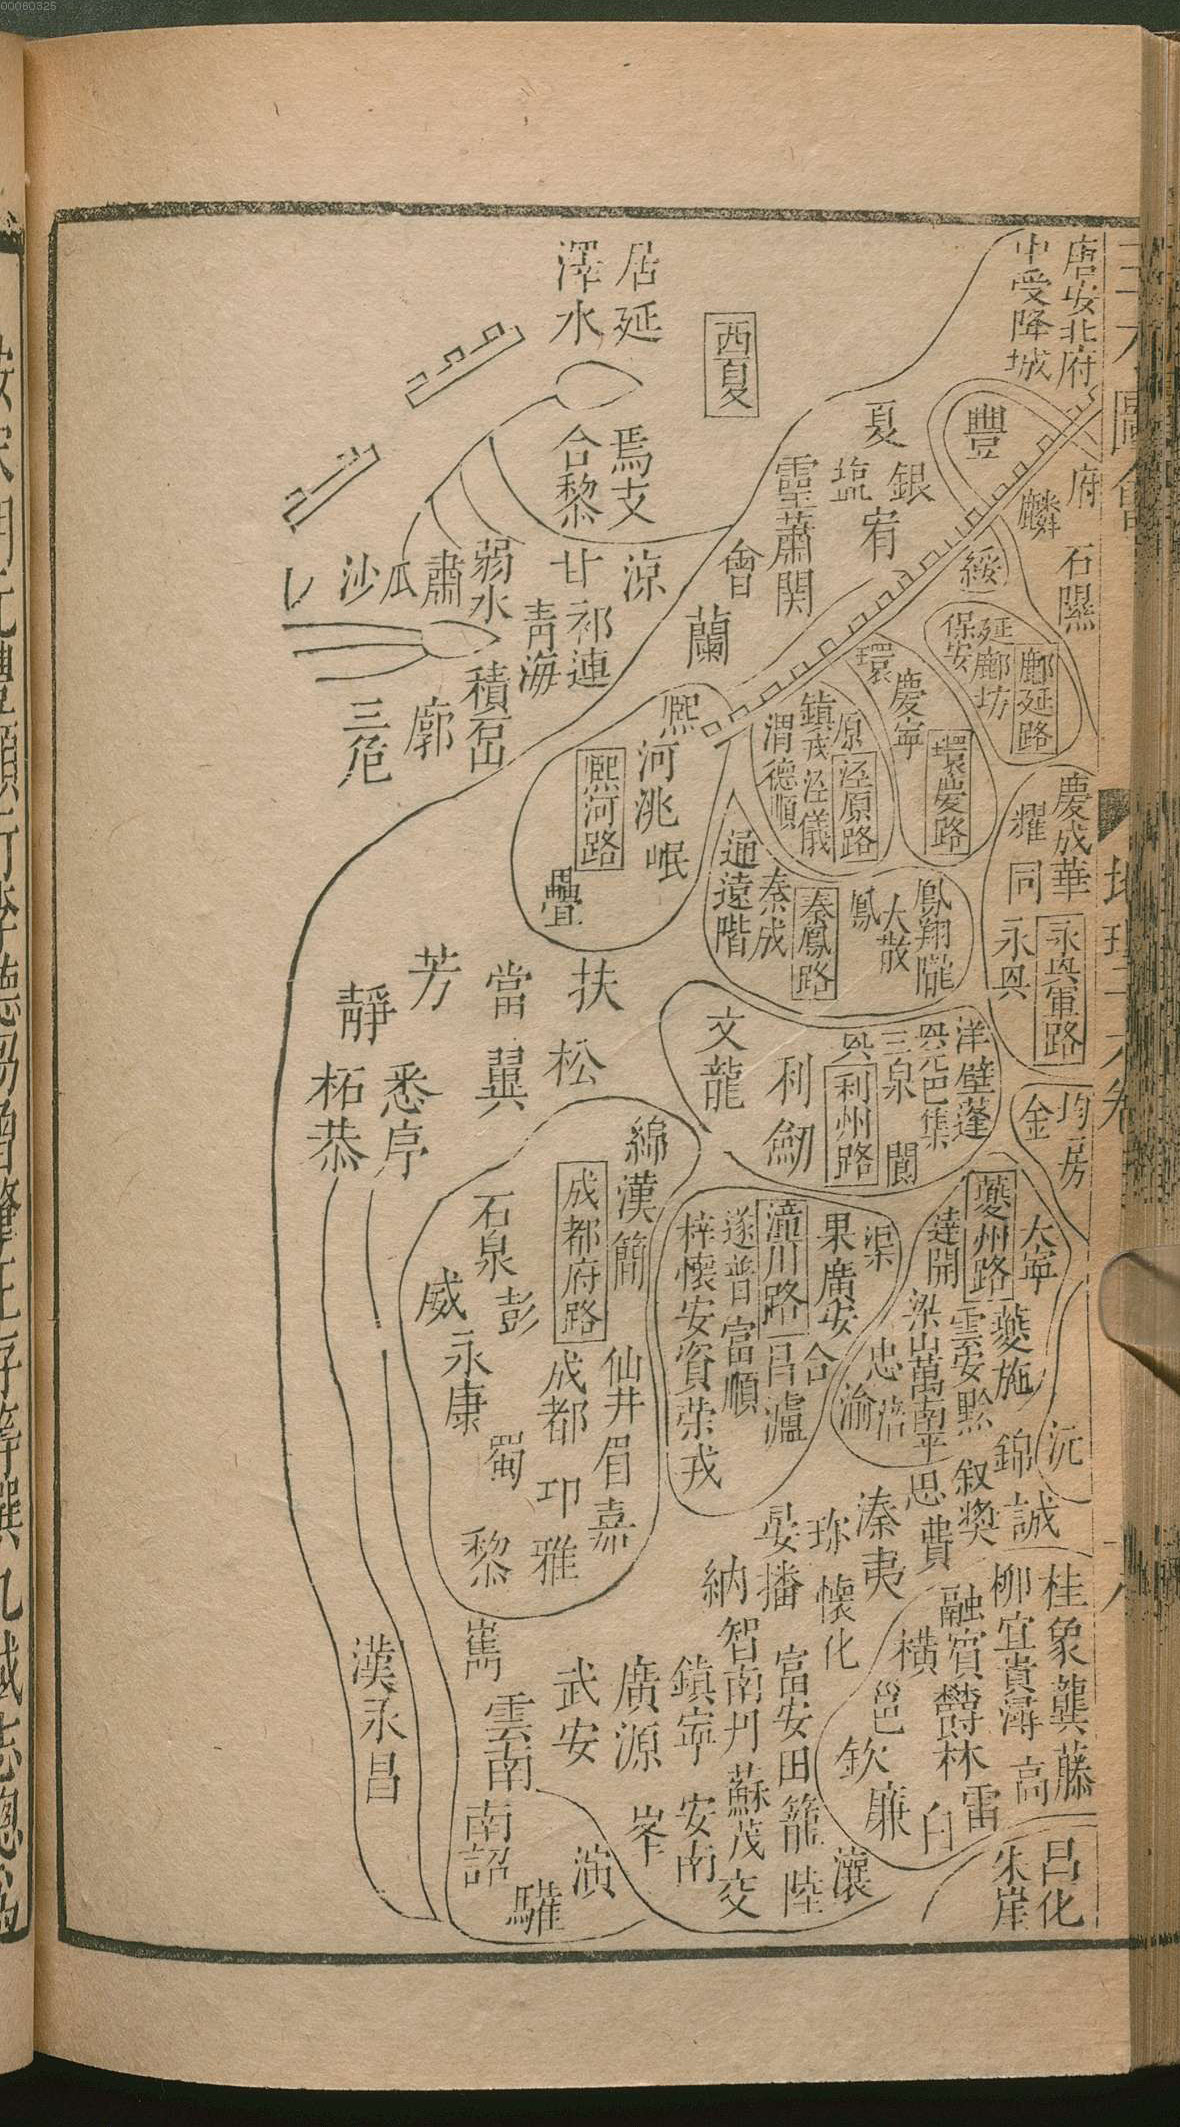 00060325
三才圖會
地理
唐安北府
中受降城
府
麟
石隰
豐
綏
夏
銀
塩
宥
靈
蕭関
西夏
居延
澤水
焉支
合黎
會
蘭
涼
甘
祁連
青海
弱水
肅
瓜
沙
積石山
廓
三危
延鄜坊
保安
鄜延路
環
慶寧
環慶路
原
鎮戎涇儀
渭德順
涇原路
熙
河洮岷
熙河路
疊
慶成華
耀
同
永興
永興軍路
鳳翔隴
大散
鳳
秦鳳路
秦成
通遠階
扶
松
當
翼
芳
靜
悉
柘恭
洋壁蓬
三泉
利州路
閬
利
劒
文龍
均房
金
大寧
夔州路
夔施
雲安黔
達開
梁山萬南平
忠
涪
渝
渠
果廣安
合
潼川路
昌瀘
遂普
富順
梓懷安資荣戎
綿
漢簡
成都府路
成都
仙井
眉
嘉
石泉
彭
威
永康
蜀
邛
雅
黎
沅
錦
誠
叙奬
思
費
溱
夷
珎
播
納
懷化
桂象龔藤
柳宜貴潯
高
融賓欝林
雷
橫
邕
欽
廉
白
昌化
朱崖
智南丹
蘇茂
交
富安田籠
陸
瀼
鎮寧
安南
廣源
峯
武安
演
驩
嶲
雲南
南詔
漢永昌